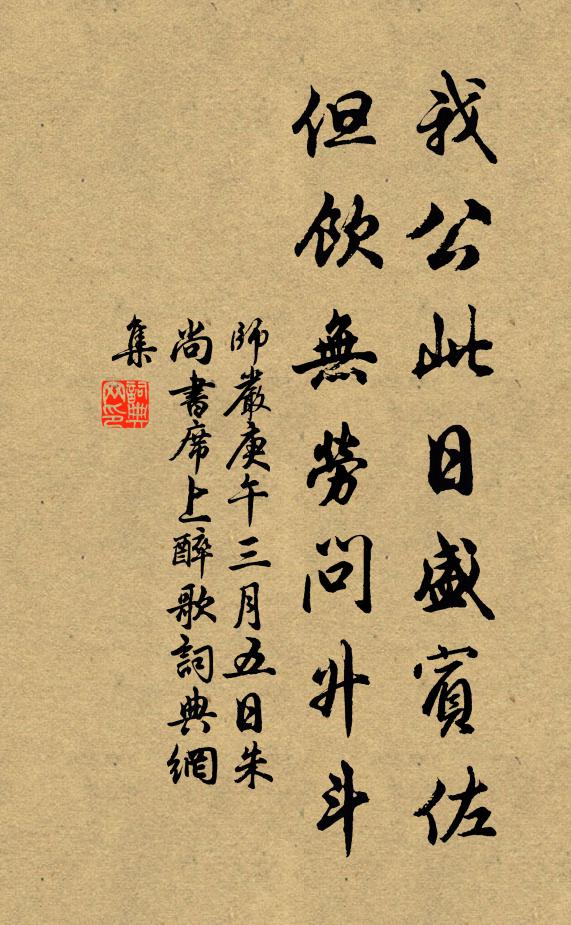 我公此日盛賓佐
但飲無勞問升斗
師嚴庚午三月五日朱
尚書席上醉歌詞典網
集
詞典
网印